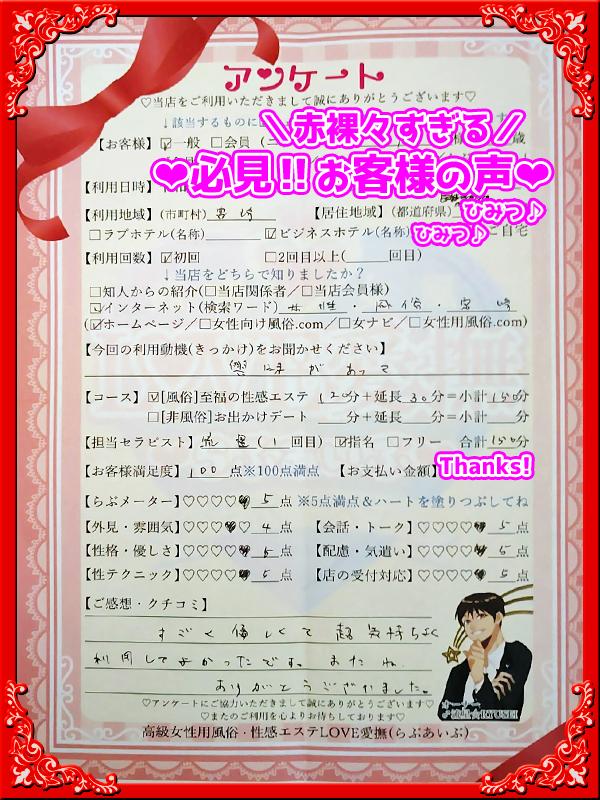 アンケート
♡当店をご利用いただきまして誠にありがとうございます♡
↓該当するものに
＼赤裸々すぎる／
【お客様】☑一般 □会員 歳
❤必見!!お客様の声❤
【利用日時】
【利用地域】(市町村) 宮崎 【居住地域】(都道府県)
ひみつ♪
□ラブホテル(名称) ☑ビジネスホテル(名称) ご自宅
ひみつ♪
【利用回数】☑初回 □2回目以上( 回目)
↓当店をどちらで知りましたか？
□知人からの紹介(□当店関係者／□当店会員様)
☑インターネット(検索ワード) 女性・風俗・宮崎
(☑ホームページ／□女性向け風俗.com／□女ナビ／□女性用風俗.com)
【今回の利用動機(きっかけ)をお聞かせください】
興味があって
【コース】☑[風俗]至福の性感エステ 120分＋延長30分＝小計150分
□[非風俗]お出かけデート 分＋延長 分＝小計 分
【担当セラピスト】流星(1回目) ☑指名 □フリー 合計150分
【お客様満足度】100点※100点満点 【お支払い金額】Thanks!
【らぶメーター】♡♡♡♡♥ 5点 ※5点満点＆ハートを塗りつぶしてね
【外見・雰囲気】♡♡♡♥♡ 4点 【会話・トーク】♡♡♡♡♥ 5点
【性格・優しさ】♡♡♡♡♥ 5点 【配慮・気遣い】♡♡♡♡♥ 5点
【性テクニック】♡♡♡♡♥ 5点 【店の受付対応】♡♡♡♡♥ 5点
【ご感想・クチコミ】
すごく優しくて超気持ちよく
利用してよかったです。またね
ありがとうございました。
オーナー
♂流星☆RYUSEI
♡アンケートにご協力いただきまして誠にありがとうございます♡
♡またのご利用を心よりお待ちしております♡
高級女性用風俗・性感エステLOVE愛撫(らぶあいぶ)